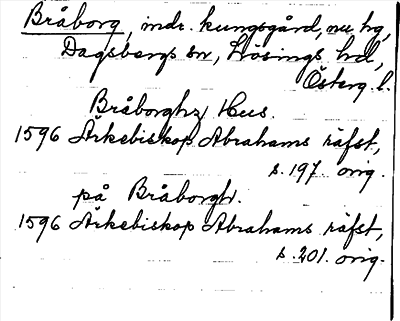 Bråborg, indr. kungsgård, nu hg,
Dagsbergs sn, Lösings hd,
Österg. l.
Bråborghz Hus.
1596 Ärkebiskop Abrahams räfst,
s. 197. orig.
på Bråborgh.
1596 Ärkebiskop Abrahams räfst,
s. 201. orig.